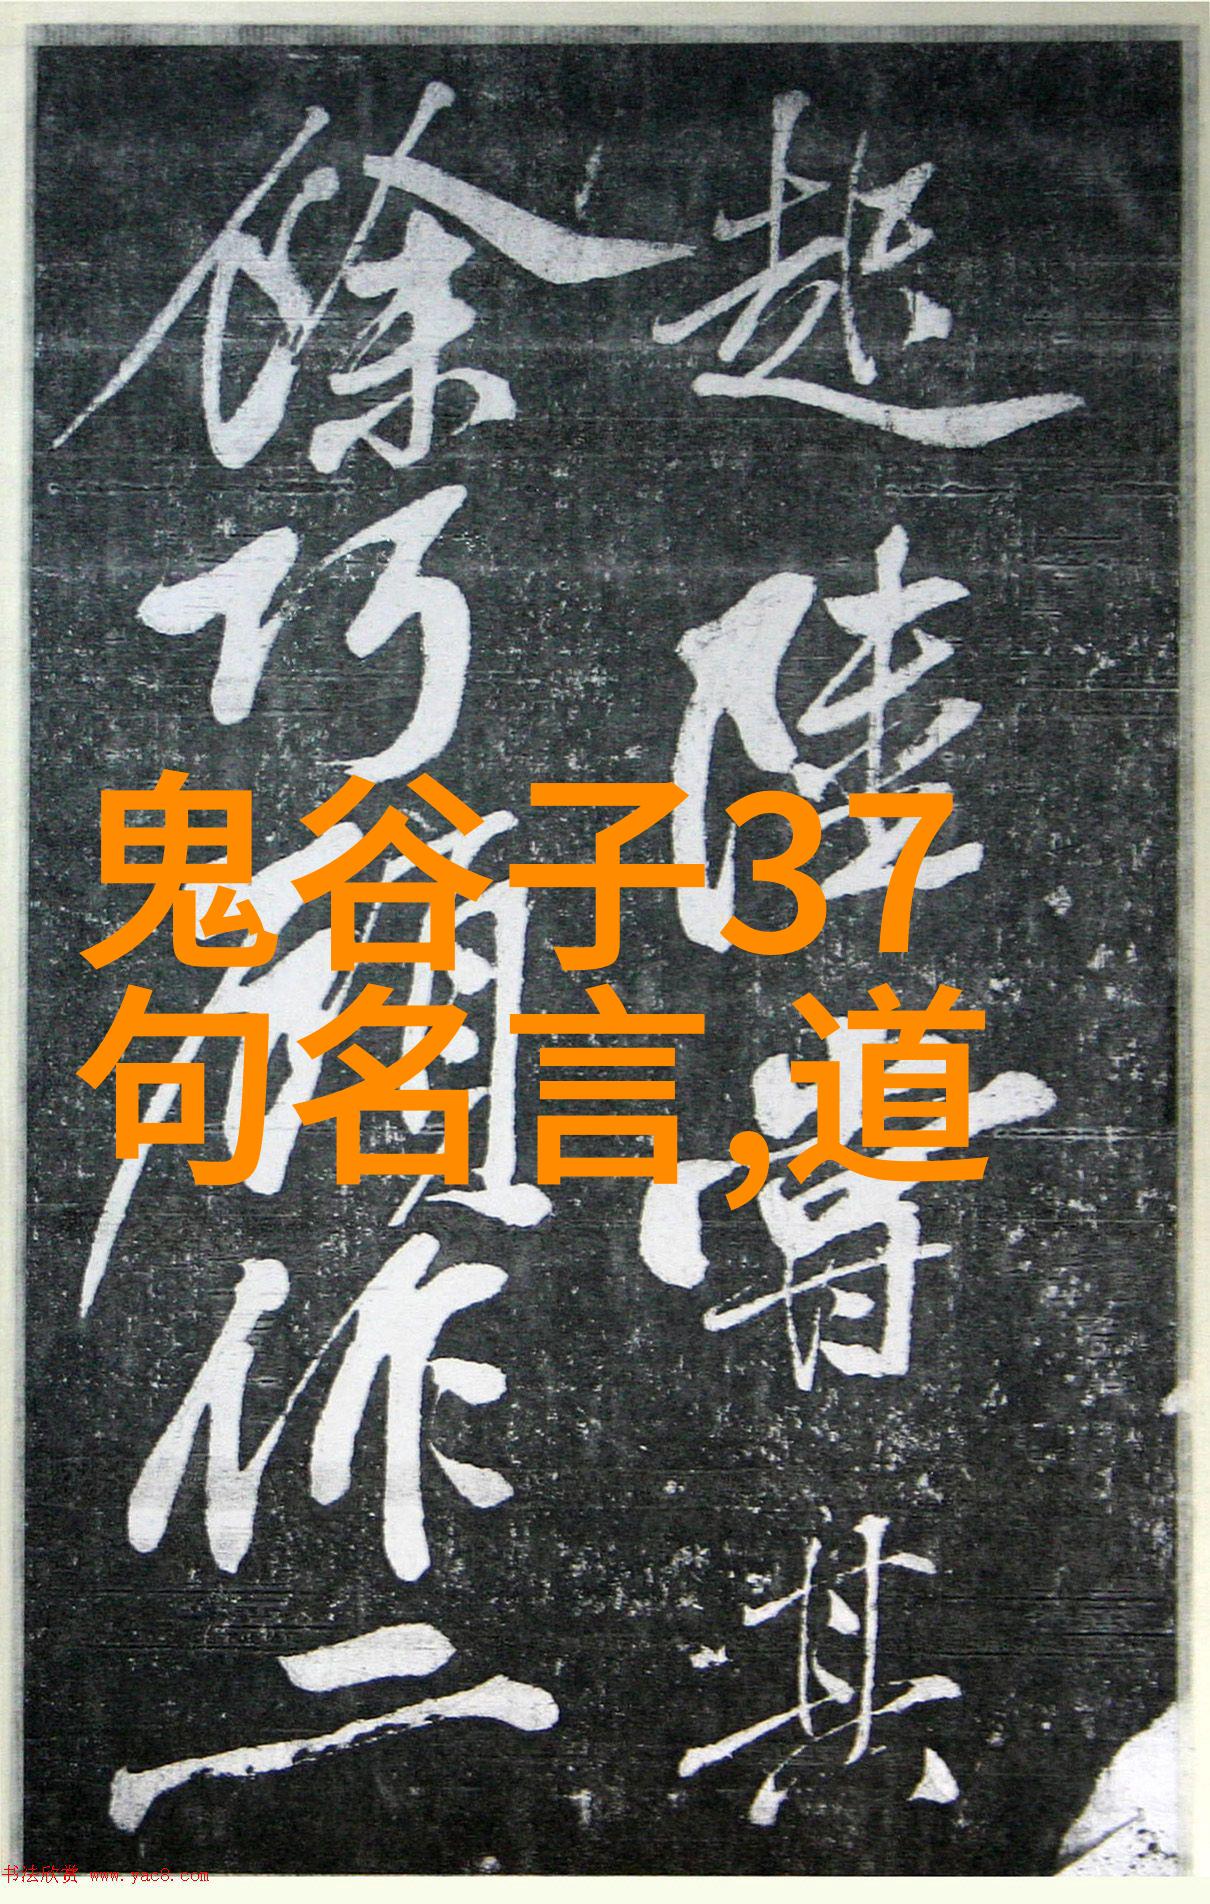 陸
其
餘巧
作二
鬼谷子37
句名言,道
书法欣赏 www.yac8.com